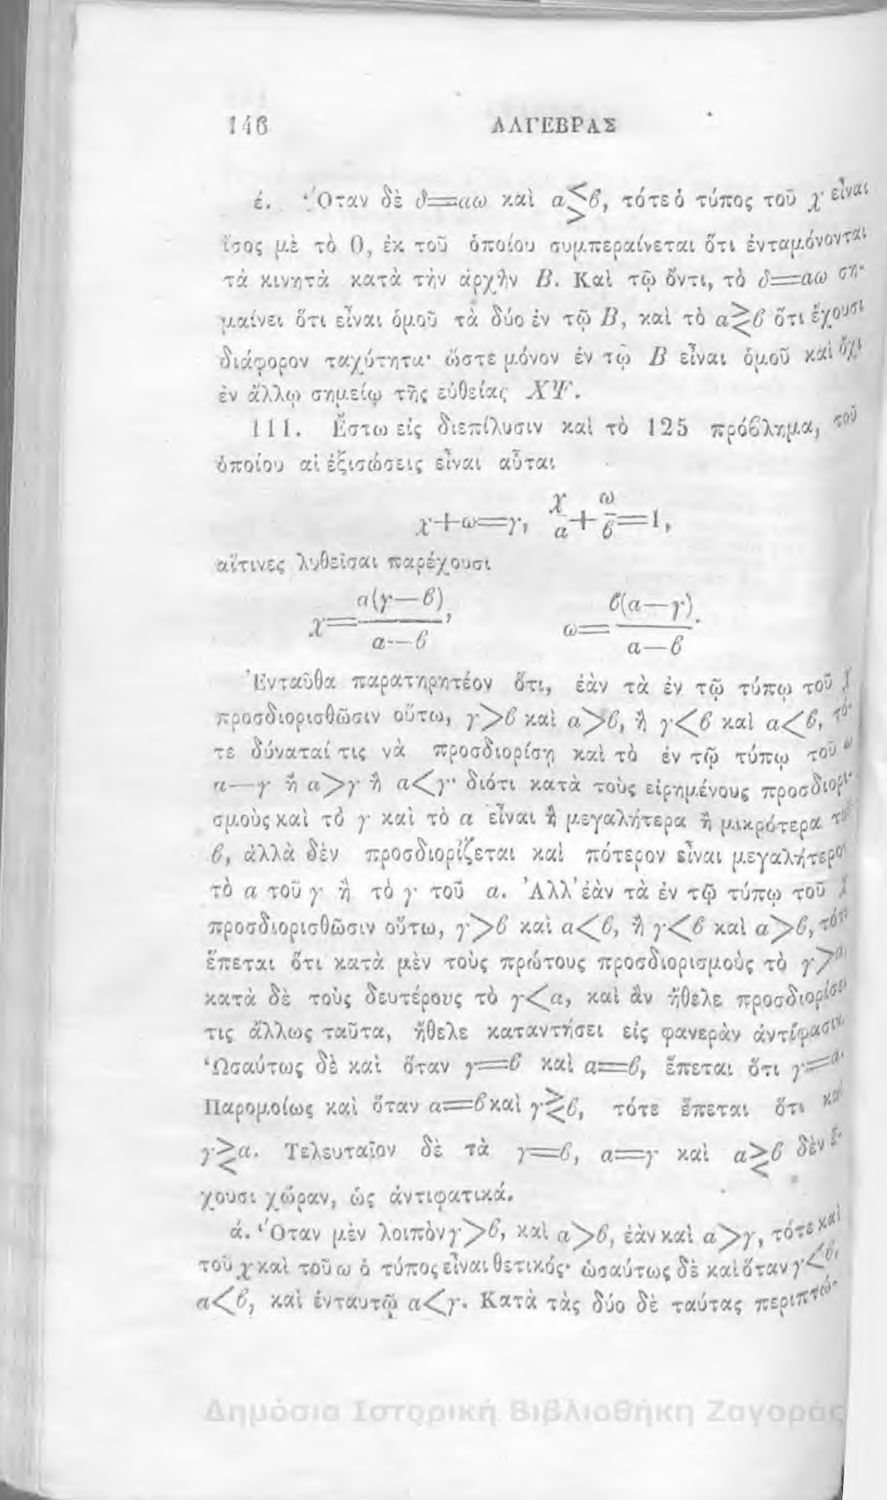 146 ΑΛΓΕΒΡΑΣ
έ. Ὅταν δὲ δ=αω καὶ α≶β, τότε ὁ τύπος τοῦ χ εἶναι
ἴσος μὲ τὸ 0, ἐκ τοῦ ὁποίου συμπεραίνεται ὅτι ἐνταμόνονται
τὰ κινητὰ κατὰ τὴν ἀρχὴν Β. Καὶ τῷ ὄντι, τὸ δ=αω ση-
μαίνει ὅτι εἶναι ὁμοῦ τὰ δύο ἐν τῷ Β, καὶ τὸ α≷β ὅτι ἔχουσι
διάφορον ταχύτητα· ὥστε μόνον ἐν τῷ Β εἶναι ὁμοῦ καὶ ὄχι
ἐν ἄλλῳ σημείῳ τῆς εὐθείας ΧΨ.
111. Ἔστω εἰς διεπίλυσιν καὶ τὸ 125 πρόβλημα, τοῦ
ὁποίου αἱ ἐξισώσεις εἶναι αὗται
χ+ω=γ, χ/α+ω/β=1,
αἵτινες λυθεῖσαι παρέχουσι
χ=α(γ—β)/α—β, ω=β(α—γ)/α—β.
Ἐνταῦθα παρατηρητέον ὅτι, ἐὰν τὰ ἐν τῷ τύπῳ τοῦ χ
προσδιορισθῶσιν οὕτω, γ>β καὶ α>β, ἢ γ<β καὶ α<β, τό-
τε δύναταί τις νὰ προσδιορίσῃ καὶ τὸ ἐν τῷ τύπῳ τοῦ ω
α—γ ἢ α>γ ἢ α<γ· διότι κατὰ τοὺς εἰρημένους προσδιορι-
σμοὺς καὶ τὸ γ καὶ τὸ α εἶναι ἢ μεγαλήτερα ἢ μικρότερα τοῦ
β, ἀλλὰ δὲν προσδιορίζεται καὶ πότερον εἶναι μεγαλήτερον
τὸ α τοῦ γ ἢ τὸ γ τοῦ α. Ἀλλ' ἐὰν τὰ ἐν τῷ τύπῳ τοῦ χ
προσδιορισθῶσιν οὕτω, γ>β καὶ α<β, ἢ γ<β καὶ α>β, τότε
ἕπεται ὅτι κατὰ μὲν τοὺς πρώτους προσδιορισμοὺς τὸ γ>α,
κατὰ δὲ τοὺς δευτέρους τὸ γ<α, καὶ ἂν ἤθελε προσδιορίσει
τις ἄλλως ταῦτα, ἤθελε καταντήσει εἰς φανερὰν ἀντίφασιν.
Ὡσαύτως δὲ καὶ ὅταν γ=β καὶ α=β, ἕπεται ὅτι γ=α.
Παρομοίως καὶ ὅταν α=β καὶ γ≷β, τότε ἕπεται ὅτι καὶ
γ≷α. Τελευταῖον δὲ τὰ γ=β, α=γ καὶ α≷β δὲν ἔ-
χουσι χώραν, ὡς ἀντιφατικά.
ά. Ὅταν μὲν λοιπὸν γ>β, καὶ α>β, ἐὰν καὶ α>γ, τότε καὶ
τοῦ χ καὶ τοῦ ω ὁ τύπος εἶναι θετικός· ὡσαύτως δὲ καὶ ὅταν γ<β,
α<β, καὶ ἐνταυτῷ α<γ. Κατὰ τὰς δύο δὲ ταύτας περιπτώ-
Δημόσια Ιστορική Βιβλιοθήκη Ζαγοράς